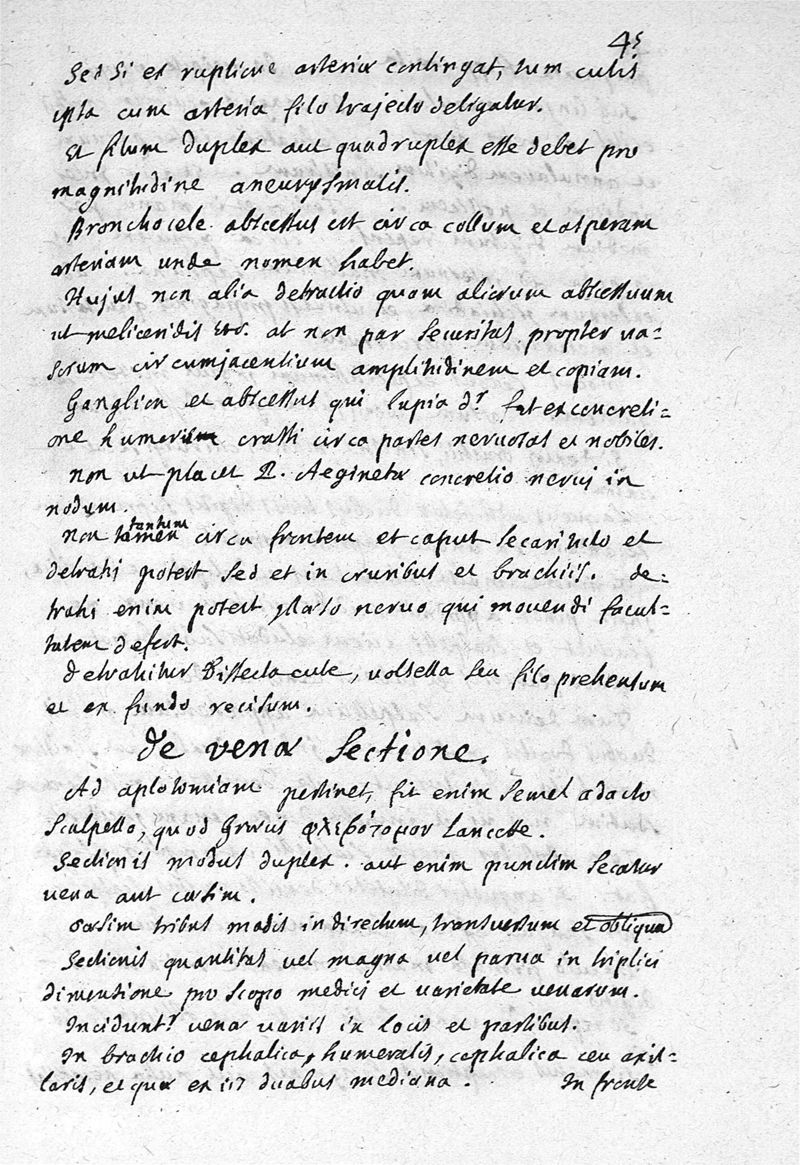 45
Sed si ex ruptione arteriæ contingat, tum cutis
ipsa cum arteria filo trajecto deligatur.
Et filum duplex aut quadruplex esse debet pro
magnitudine aneurysmatis.
Bronchocele abscessus est circa collum et asperam
arteriam unde nomen habet.
Hujus non alia detractio quam aliorum abscessuum
ut meliceridis etc. at non par securitas propter va=
sorum circumjacentium amplitudinem et copiam.
Ganglion et abscessus qui lupia dr fit ex concreti=
one humorum crassi circa partes nervosas et nobiles.
non ut placet P. Aeginetæ concretio nervi in
nodum.
non tamen tantum circa frontem et caput secari tuto et
detrahi potest sed et in cruribus et brachiis. de=
trahi enim potest nervo qui movendi facul=
tatem defert.
detrahitur dissecta cute, volsella seu filo prehensum
et ex fundo recisum.
de venæ sectione.
Ad aplotomiam pertinet, fit enim semel adacto
scalpello, quod Græcis φλεβότομον Lancette.
Sectionis modus duplex. aut enim punctim secatur
vena aut cæsim.
cæsim tribus modis in directum, transversum et obliqua
Sectionis quantitas vel magna vel parva in triplici
dimentione pro scopo medici et varietate venarum.
Inciduntr venæ variis in locis et partibus.
In brachio cephalica, humeralis, cephalica ceu axil=
laris, et quæ ex iis duabus mediana.
In fronte